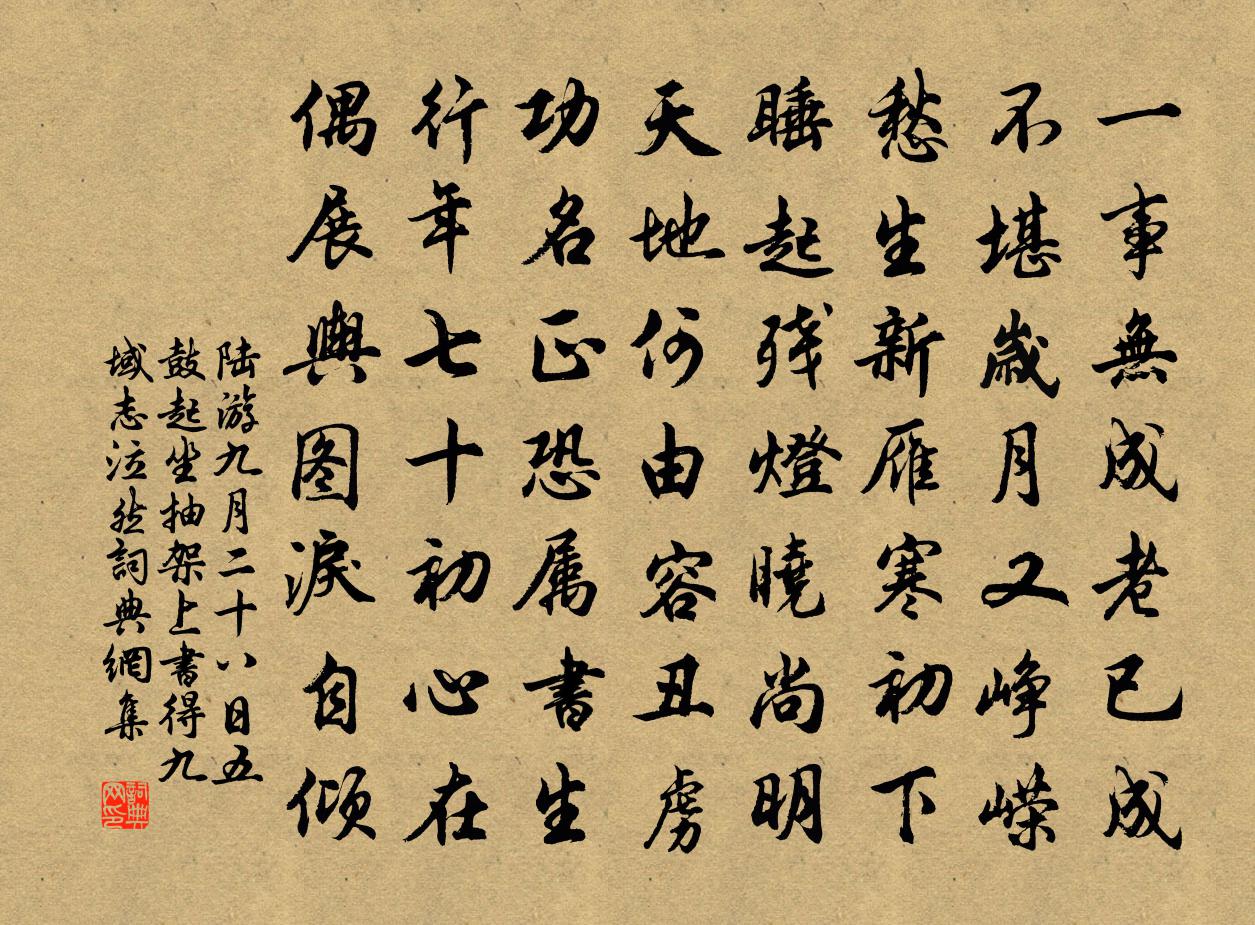 一事無成老已成
不堪歲月又峥嶸
愁生新雁寒初下
睡起残燈曉尚明
天地何由容丑虏
功名正恐属書生
行年七十初心在
偶展輿图淚自倾
陆游九月二十八日五
鼓起坐抽架上書得九
域志泣然詞典網集
詞典网印